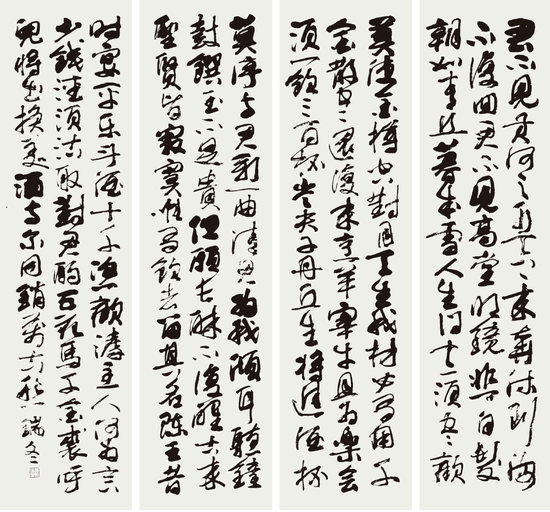 君不見黃河之水天上來奔流到海
不復回君不見高堂明鏡悲白髮
朝如青絲暮成雪人生得意須盡歡
莫使金樽空對月天生我材必有用千
金散盡還復來烹羊宰牛且為樂會
須一飲三百杯岑夫子丹丘生將進酒杯
莫停與君歌一曲請君為我傾耳聽鐘
鼓饌玉不足貴但願長醉不復醒古來
聖賢皆寂寞惟有飲者留其名陳王昔
時宴平樂斗酒十千恣歡謔主人何為言
少錢徑須沽取對君酌五花馬千金裘呼
兒將出換美酒與爾同銷萬古愁